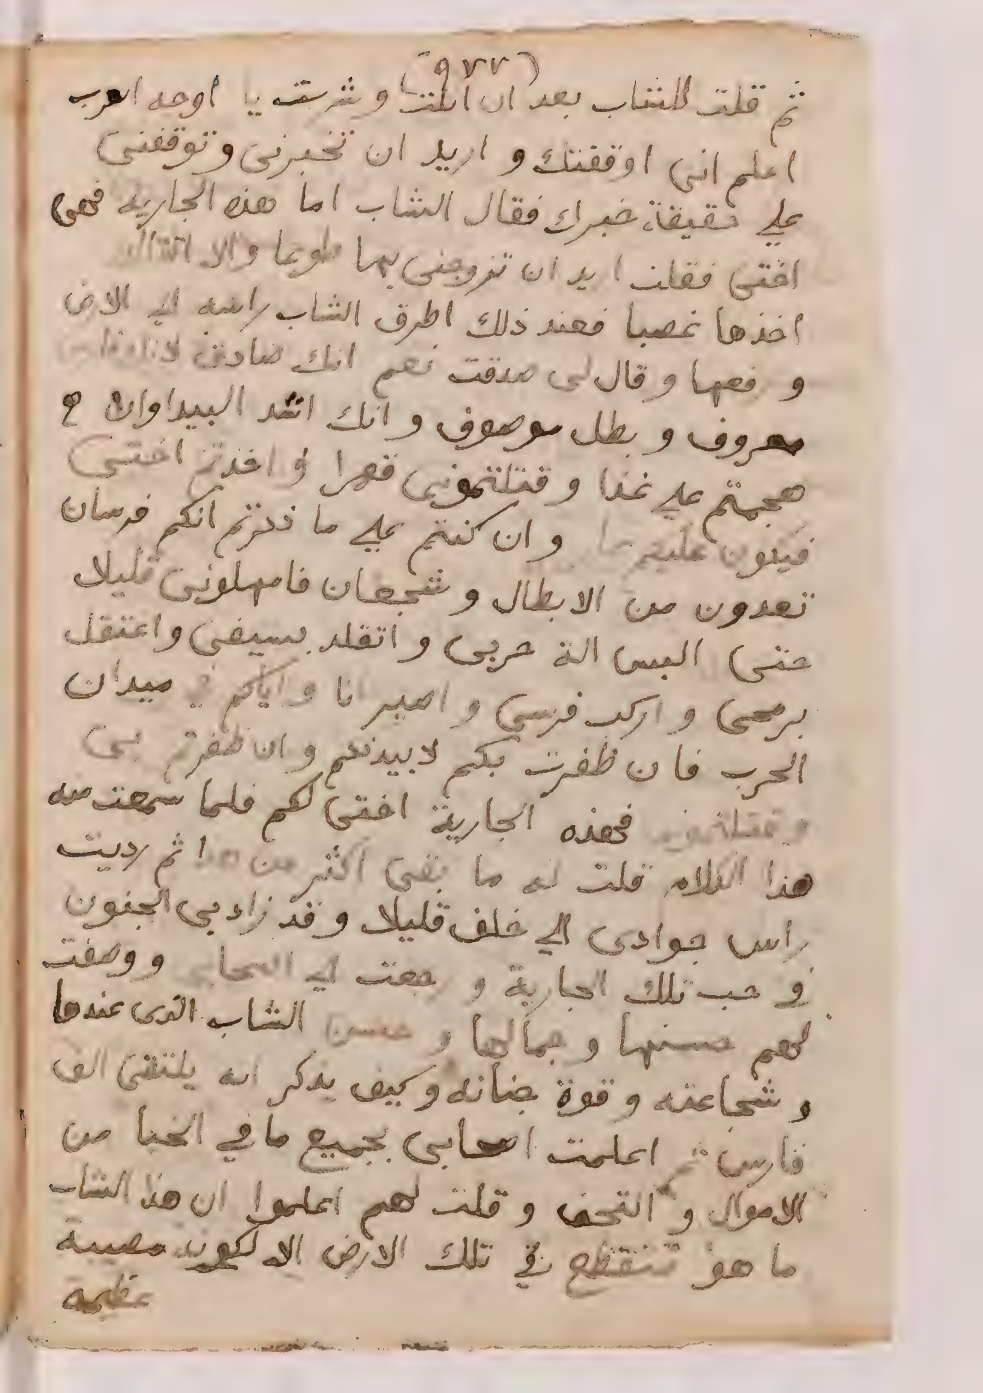 (٩٧٧)
ثم قلت للشاب بعد ان اكلت و شربت يا اوجه العرب
اعلم انى اوقفتك و اريد ان تخبرنى و توقفنى
على حقيقة خبرك فقال الشاب اما هذه الجارية فهى
اختى فقلت اريد ان تزوجنى بها طوعا والا اقتلك
اخذها غصبا فعند ذلك اطرق الشاب راسه الى الارض
و رفعها و قال لى صدقت نعم انك صادق لانك فارس
معروف و بطل موصوف و انك اسد البيدا وان
هجمتم على غدا و قتلتمونى قهرا و اخذتم اختى
فيكون عليكم عار و ان كنتم على ما ذكرتم انكم فرسان
تعدون من الابطال و شجعان فامهلونى قليلا
حتى البس الة حربى و اتقلد بسيفى و اعتقل
برمحى و اركب فرسى و اصير انا و اياكم في ميدان
الحرب فان ظفرت بكم لابيدنكم و ان ظفرتم بى
و قتلتمونى فهذه الجارية اختى لكم فلما سمعت منه
هذا الكلام قلت له ما بقى اكثر من هذا ثم رديت
راس جوادى الى خلف قليلا و قد زاد بى الجنون
فى حب تلك الجارية و رجعت الى اصحابى و وصفت
لهم حسنها و جمالها و حسن الشاب الذى عندها
و شجاعته و قوة جنانه و كيف يذكر انه يلتقى الف
فارس ثم اعلمت اصحابى بجميع ما في الخبا من
الاموال و التحف و قلت لهم اعلموا ان هذا الشاب
ما هو تنقطع في تلك الارض الا لكونه مصيبة
عظيمة